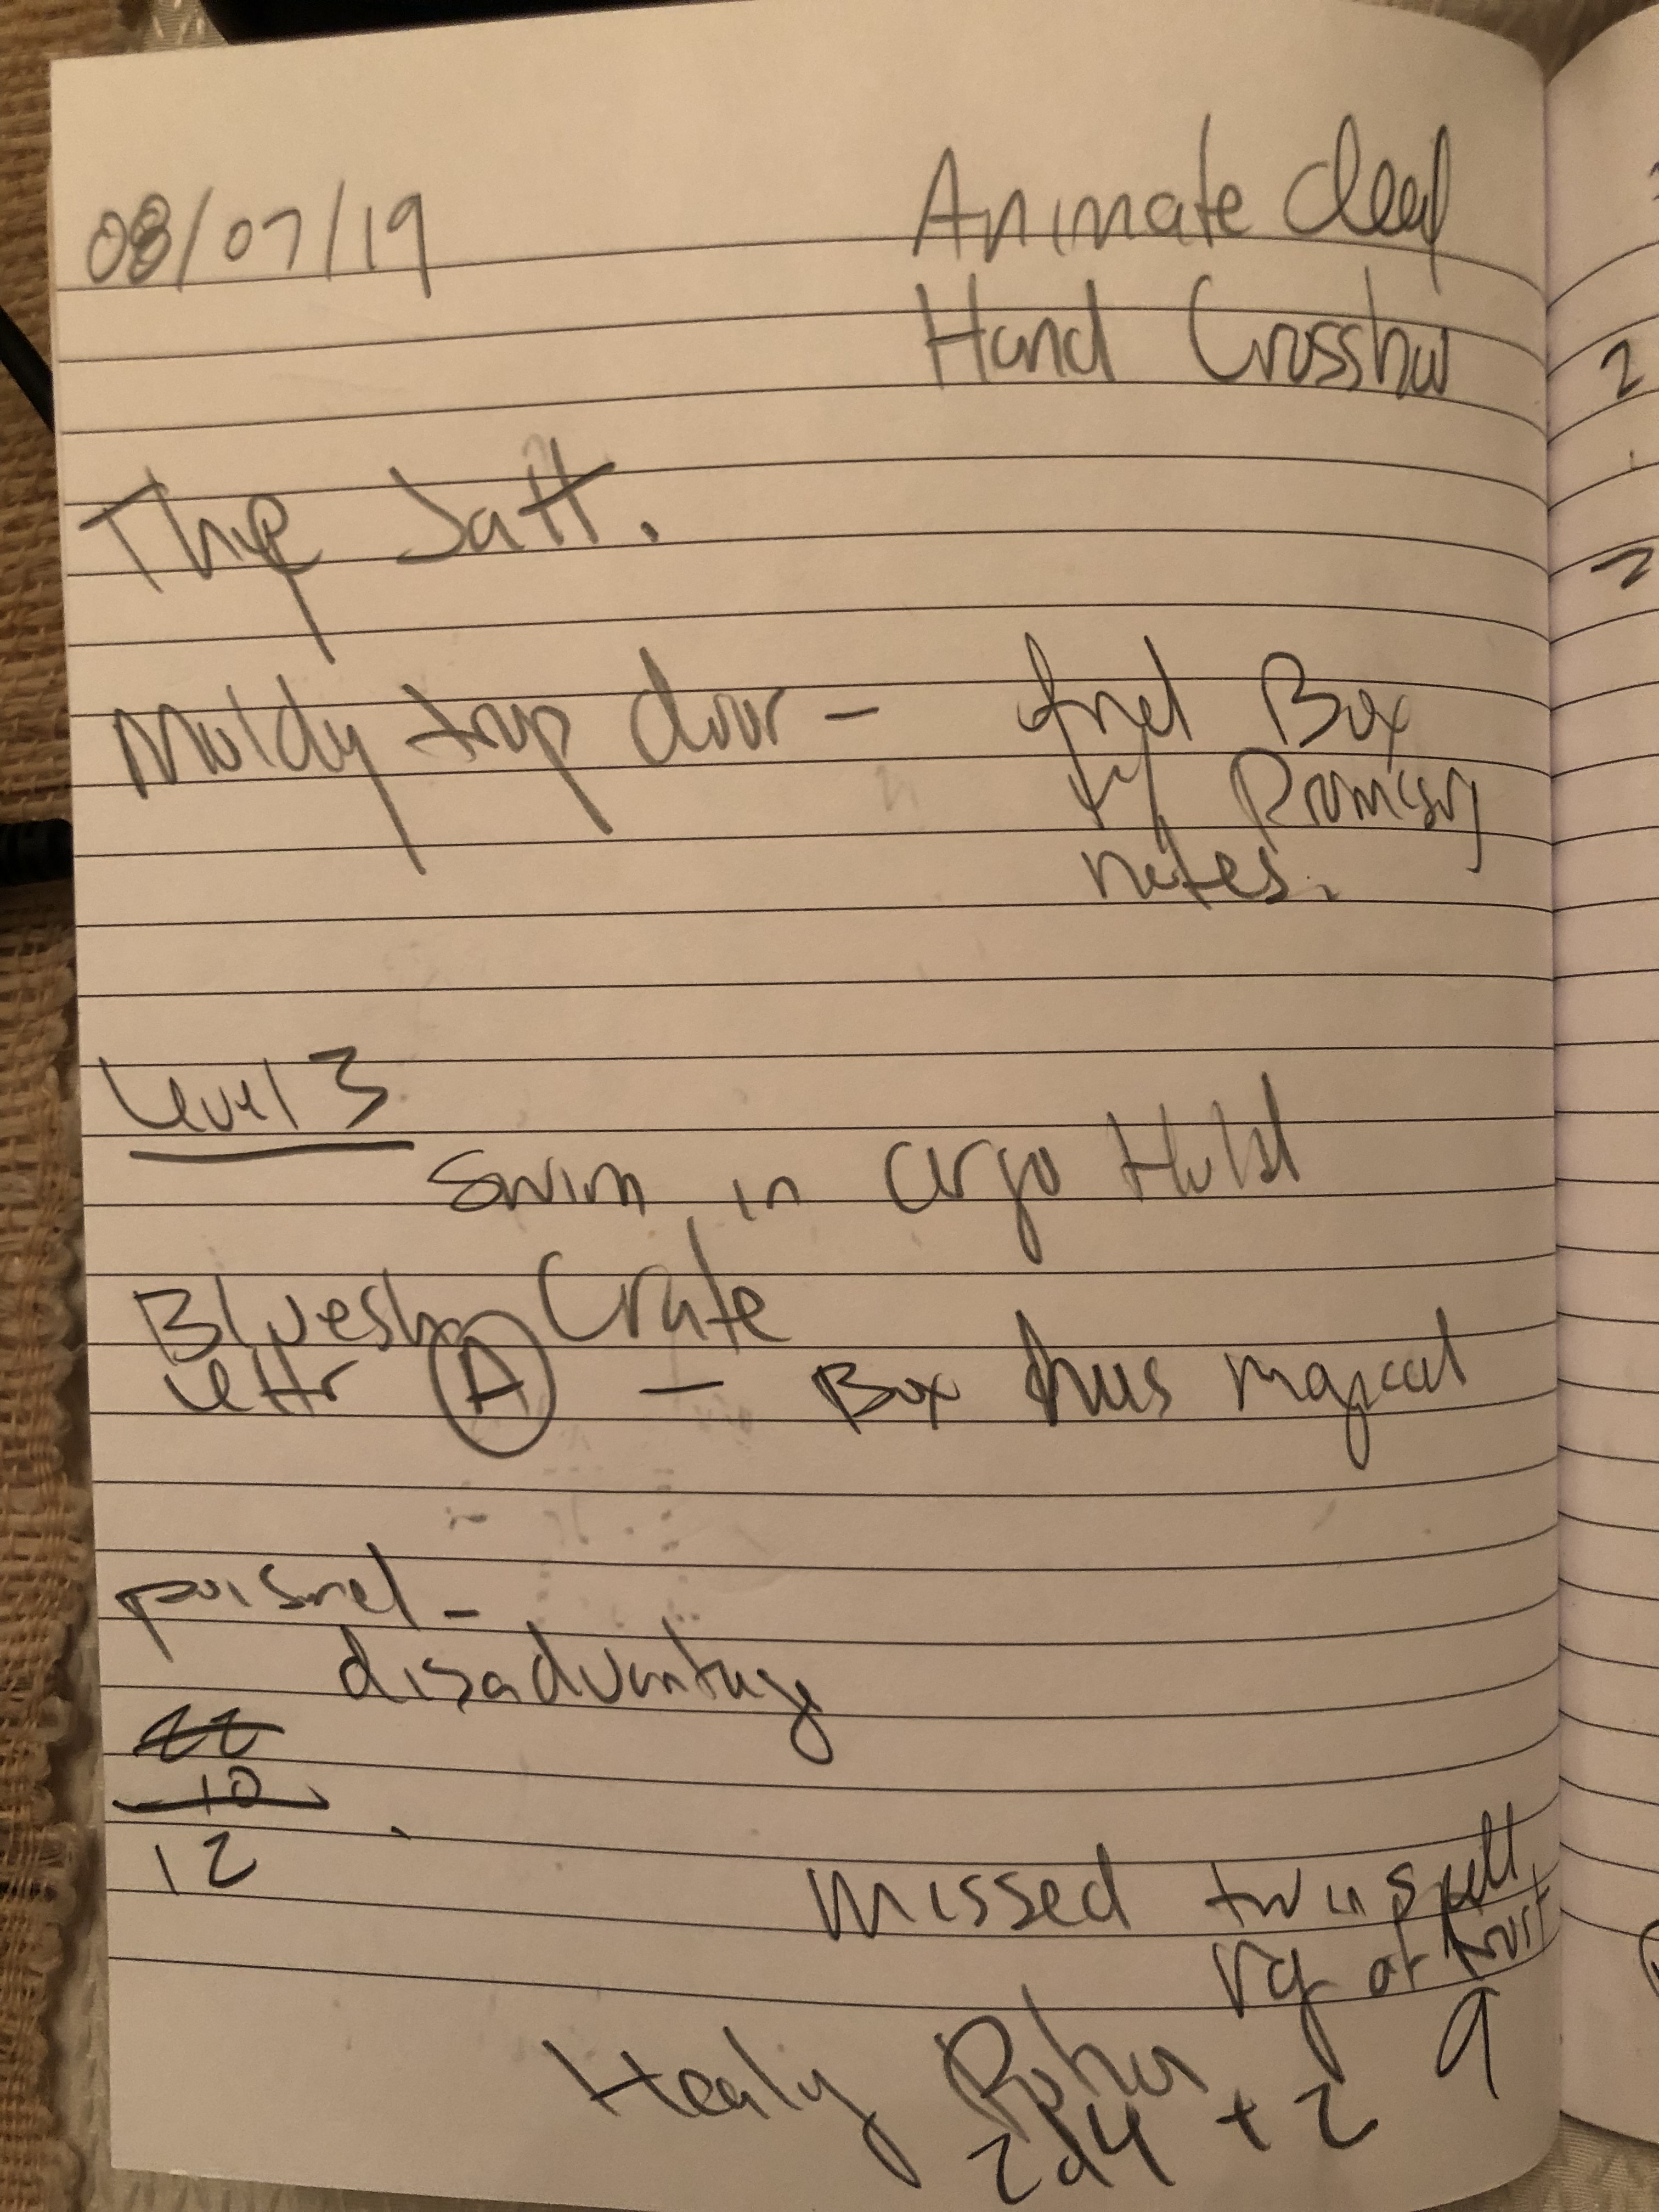 08/07/19
Animate dead
Hand Crossbow
Moldy trap door - find Box
w/ Promisory
notes.
Level 3
Swim in cargo Hold
Bluesh Crate
letter A - Box has magical
poisned -
disadvantage
22
-10
12
Missed twin spell
at
9
Healy Potion
2d4 + 2
2
2